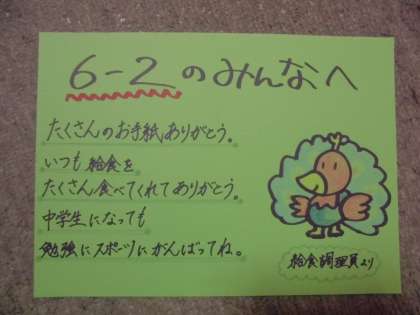 6-2のみんなへ
たくさんのお手紙ありがとう。
いつも給食を
たくさん食べてくれてありがとう。
中学生になっても
勉強にスポーツにがんばってね。
給食調理員より